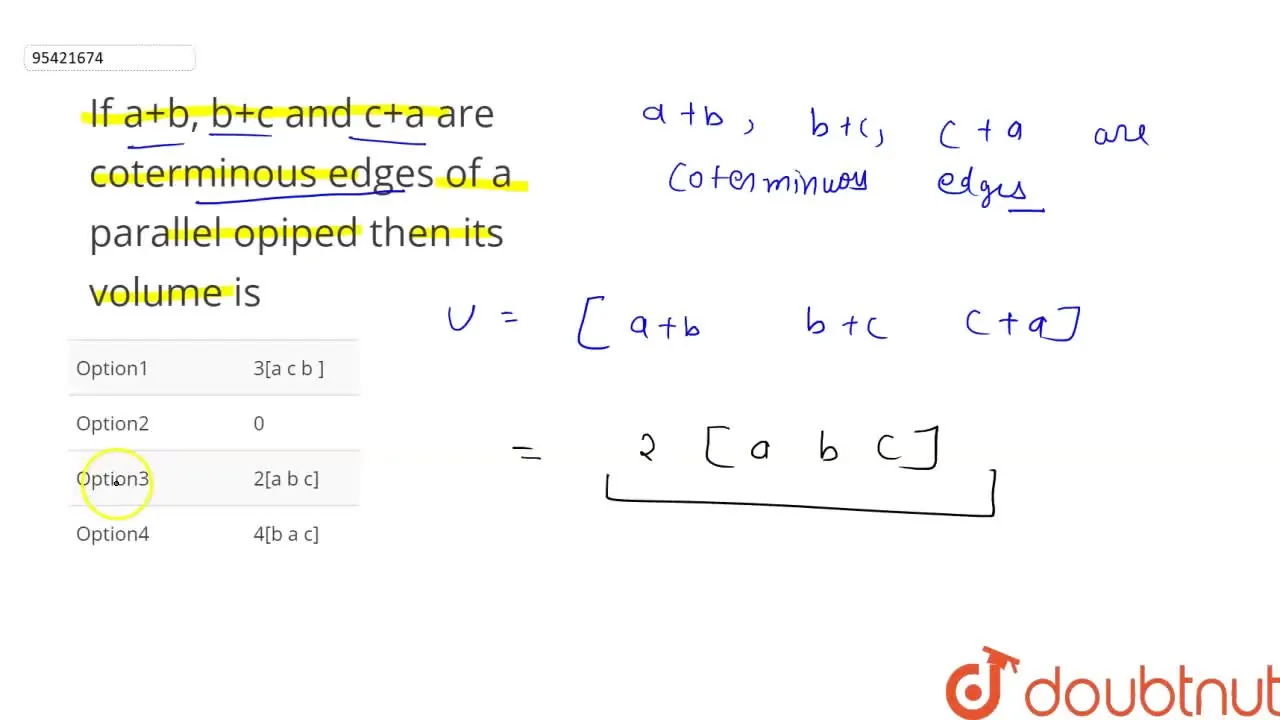 95421674
If a+b, b+c and c+a are
coterminous edges of a
parallel opiped then its
volume is
Option1 3[a c b ]
Option2 0
Option3 2[a b c]
Option4 4[b a c]
a+b, b+c, c+a are
Coterminuos edges
U = [a+b b+c c+a]
= 2 [a b c]
doubtnut